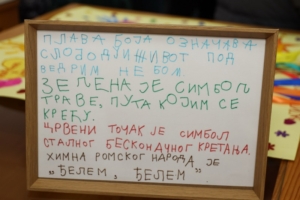 ПЛАВА БОЈА ОЗНАЧАВА
СЛОБОДУ И ЖИВОТ ПОД
ВЕДРИМ НЕБОМ.
ЗЕЛЕНА ЈЕ СИМБОЛ
ТРАВЕ, ПУТА КОЈИМ СЕ
КРЕЋУ.
ЦРВЕНИ ТОЧАК ЈЕ СИМБОЛ
СТАЛНОГ БЕСКОНАЧНОГ КРЕТАЊА.
ХИМНА РОМСКОГ НАРОДА ЈЕ
„ЂЕЛЕМ, ЂЕЛЕМ"